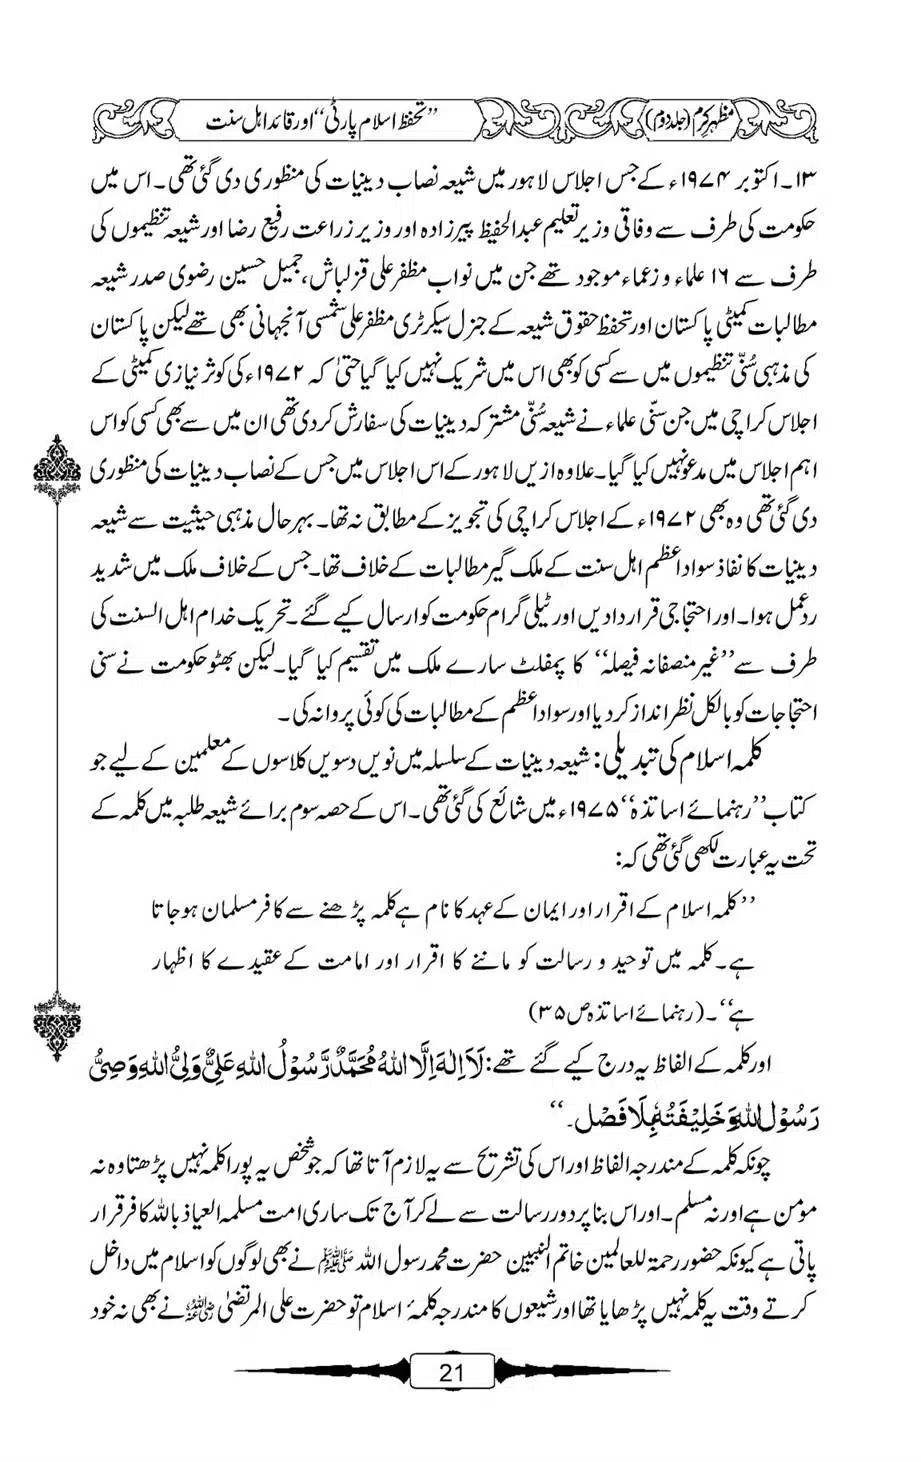 مظہرِکرم (جلد دوم)
”تحفظ اسلام پارٹی“ اور قائد اہل سنت
۱۳۔اکتوبر ۱۹۷۴ء کے جس اجلاس لاہور میں شیعہ نصاب دینیات کی منظوری دی گئی تھی۔ اس میں
حکومت کی طرف سے وفاقی وزیر تعلیم عبدالحفیظ پیرزادہ اور وزیر زراعت رفیع رضا اور شیعہ تنظیموں کی
طرف سے ۱۶ علماء و زعماء موجود تھے جن میں نواب مظفر علی قزلباش، جمیل حسین رضوی صدر شیعہ
مطالبات کمیٹی پاکستان اور تحفظ حقوق شیعہ کے جنرل سیکرٹری مظفر علی شمسی آنجہانی بھی تھے لیکن پاکستان
کی مذہبی سُنّی تنظیموں میں سے کسی کو بھی اس میں شریک نہیں کیا گیا حتیٰ کہ ۱۹۷۲ء کی کوثر نیازی کمیٹی کے
اجلاس کراچی میں جن سنّی علماء نے شیعہ سُنّی مشترکہ دینیات کی سفارش کر دی تھی ان میں سے بھی کسی کو اس
اہم اجلاس میں مدعو نہیں کیا گیا۔ علاوہ ازیں لاہور کے اس اجلاس میں جس کے نصاب دینیات کی منظوری
دی گئی تھی وہ بھی ۱۹۷۲ء کے اجلاس کراچی کی تجویز کے مطابق نہ تھا۔ بہرحال مذہبی حیثیت سے شیعہ
دینیات کا نفاذ سواد اعظم اہل سنت کے ملک گیر مطالبات کے خلاف تھا۔ جس کے خلاف ملک میں شدید
ردعمل ہوا۔ اور احتجاجی قراردادیں اور ٹیلی گرام حکومت کو ارسال کیے گئے۔ تحریک خدام اہل السنت کی
طرف سے ”غیر منصفانہ فیصلہ“ کا پمفلٹ سارے ملک میں تقسیم کیا گیا۔ لیکن بھٹو حکومت نے سنی
احتجاجات کو بالکل نظر انداز کر دیا اور سواد اعظم کے مطالبات کی کوئی پروا نہ کی۔
کلمہ اسلام کی تبدیلی: شیعہ دینیات کے سلسلہ میں نویں دسویں کلاسوں کے معلمین کے لیے جو
کتاب ”رہنمائے اساتذہ“ ۱۹۷۵ء میں شائع کی گئی تھی۔ اس کے حصہ سوم برائے شیعہ طلبہ میں کلمہ کے
تحت یہ عبارت لکھی گئی تھی کہ:
”کلمہ اسلام کے اقرار اور ایمان کے عہد کا نام ہے کلمہ پڑھنے سے کافر مسلمان ہو جاتا
ہے۔ کلمہ میں توحید و رسالت کو ماننے کا اقرار اور امامت کے عقیدے کا اظہار
ہے“۔ (رہنمائے اساتذہ ص ۳۵)
اور کلمہ کے الفاظ یہ درج کیے گئے تھے: لَا اِلٰہَ اِلَّا اللہُ مُحَمَّدٌ رَّسُوْلُ اللہِ عَلِیٌّ وَلِیُّ اللہِ وَصِیُّ
رَسُوْلِ اللہِ وَخَلِیْفَتُہٗ بِلَا فَصْل۔“
چونکہ کلمہ کے مندرجہ الفاظ اور اس کی تشریح سے یہ لازم آتا تھا کہ جو شخص یہ پورا کلمہ نہیں پڑھتا وہ نہ
مومن ہے اور نہ مسلم۔ اور اس بنا پر دور رسالت سے لے کر آج تک ساری امت مسلمہ العیاذ باللہ کافر قرار
پاتی ہے کیونکہ حضور رحمۃ للعالمین خاتم النبیین حضرت محمد رسول اللہ ﷺ نے بھی لوگوں کو اسلام میں داخل
کرتے وقت یہ کلمہ نہیں پڑھایا تھا اور شیعوں کا مندرجہ کلمۂ اسلام تو حضرت علی المرتضیٰ رضی اللہ عنہ نے بھی نہ خود
21